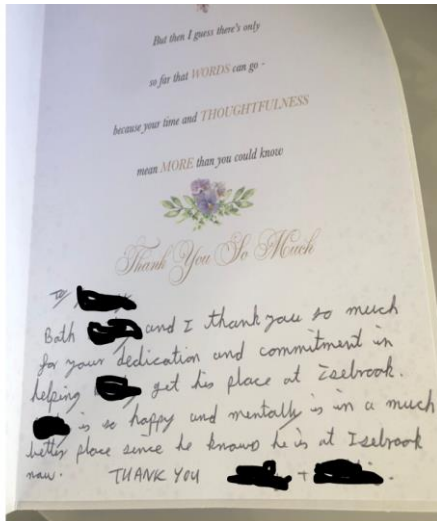 But then I guess there's only
so far that WORDS can go -
because your time and THOUGHTFULNESS
mean MORE than you could know
Thank You So Much
To
Both and I thank you so much
for your dedication and commitment in
helping get his place at Isebrook.
is so happy and mentally is in a much
better place since he knows he is at Isebrook
now. THANK YOU +